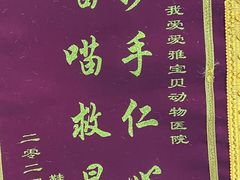 我爱爱雅宝贝动物医院
手仁
喵救
二零二